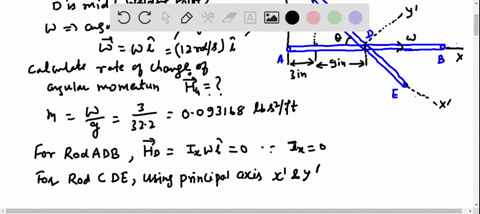 D is mid
W => angu
W⃗ = W î = (12 rd/s) î
calculate rate of change of
angular momentum Ḣ⃗G = ?
m = W/g = 3/32.2 = 0.093168 lb s²/ft
For Rod ADB, H⃗D = Ix W î = 0 ∵ Ix = 0
For Rod CDE, using principal axis x' & y'
y'
θ
D
W
A
B
x
3in
9in
E
x'